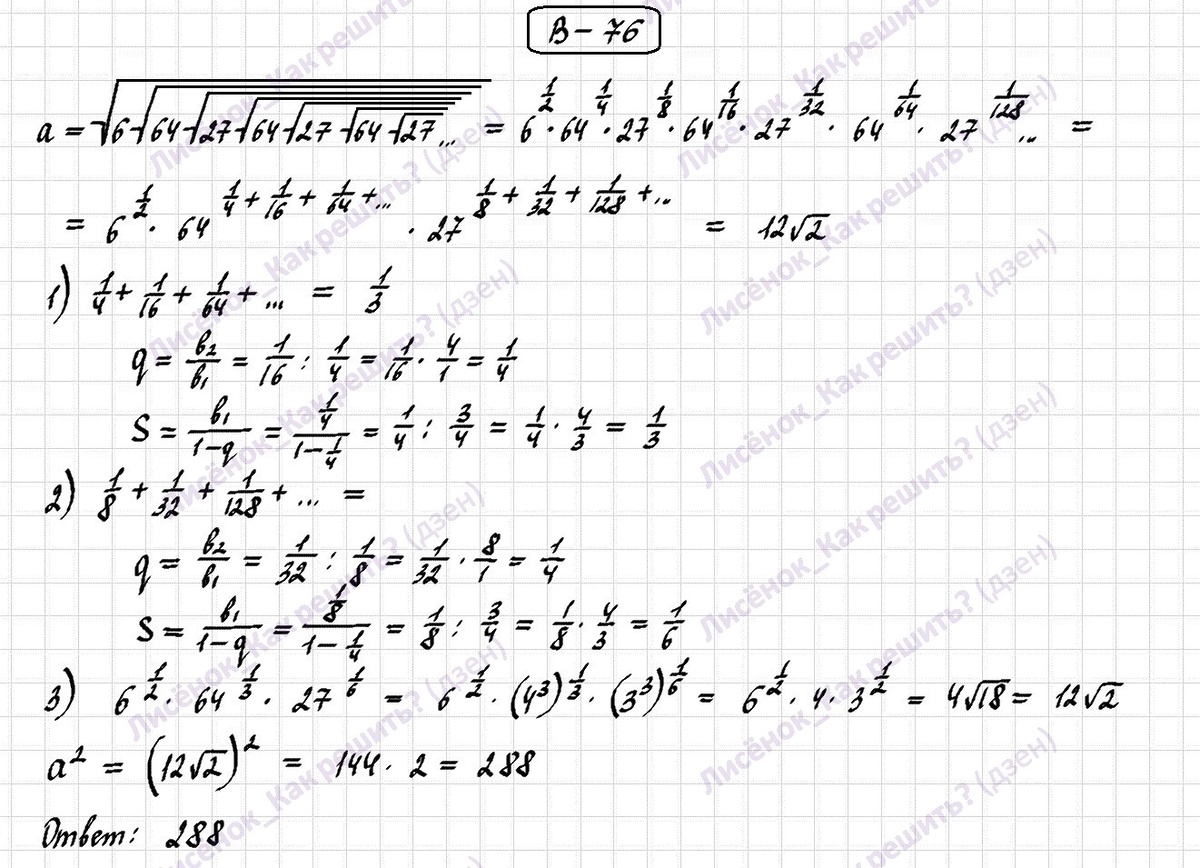 В – 76
a = √6√64√27√64√27√64√27... = 6^(1/2) · 64^(1/4) · 27^(1/8) · 64^(1/16) · 27^(1/32) · 64^(1/64) · 27^(1/128) ... =
= 6^(1/2) · 64^(1/4 + 1/16 + 1/64 + ...) · 27^(1/8 + 1/32 + 1/128 + ...) = 12√2
1) 1/4 + 1/16 + 1/64 + ... = 1/3
q = b₂/b₁ = 1/16 : 1/4 = 1/16 · 4/1 = 1/4
S = b₁/(1-q) = (1/4)/(1-1/4) = 1/4 : 3/4 = 1/4 · 4/3 = 1/3
2) 1/8 + 1/32 + 1/128 + ... =
q = b₂/b₁ = 1/32 : 1/8 = 1/32 · 8/1 = 1/4
S = b₁/(1-q) = (1/8)/(1-1/4) = 1/8 : 3/4 = 1/8 · 4/3 = 1/6
3) 6^(1/2) · 64^(1/3) · 27^(1/6) = 6^(1/2) · (4³)^(1/3) · (3³)^(1/6) = 6^(1/2) · 4 · 3^(1/2) = 4√18 = 12√2
a² = (12√2)² = 144 · 2 = 288
Ответ: 288
Лисёнок_Как решить? (дзен)